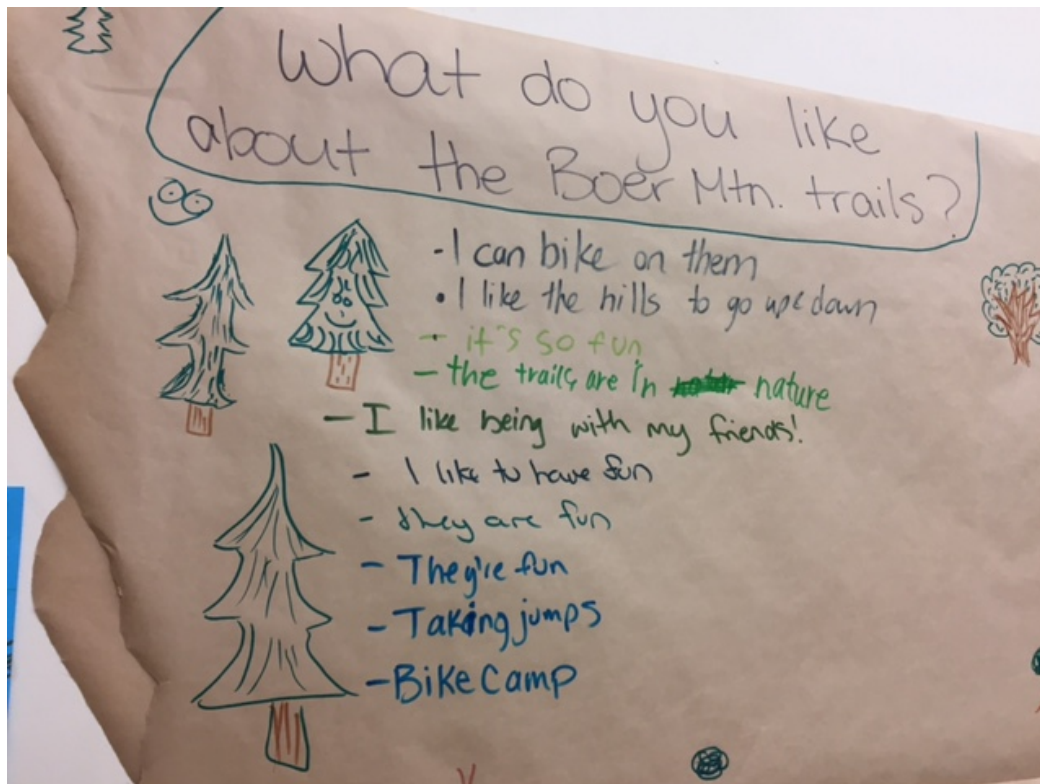 What do you like
about the Boer Mtn. trails?
- I can bike on them
• I like the hills to go up & down
- it's so fun
- the trails are in nature
- I like being with my friends!
- I like to have fun
- they are fun
- They're fun
- Taking jumps
- Bike Camp